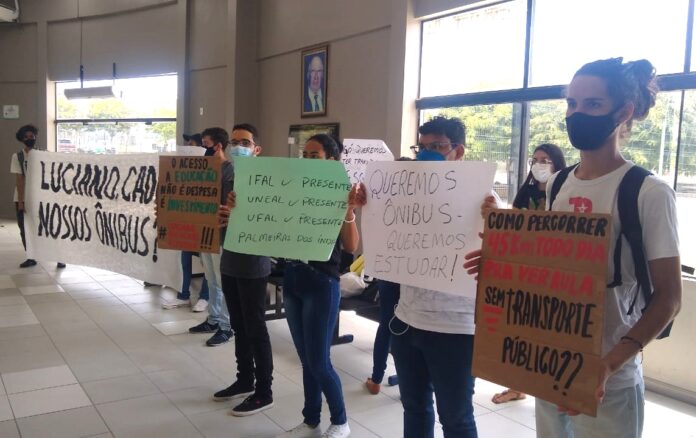 LUCIANO, CADÊ
NOSSOS ÔNIBUS!
A EDUCAÇÃO
NÃO É DESPESA
É
INVESTIMENTO
!!!
IFAL ✓ PRESENTE
UNEAL ✓ PRESENTE
UFAL ✓ PRESENTE
PALMEIRAS DOS ÍNDIOS
QUEREMOS
QUEREMOS
ÔNIBUS -
QUEREMOS
ESTUDAR!
COMO PERCORRER
45 Km TODO DIA
PRA VER AULA
SEM TRANSPORTE
PÚBLICO??